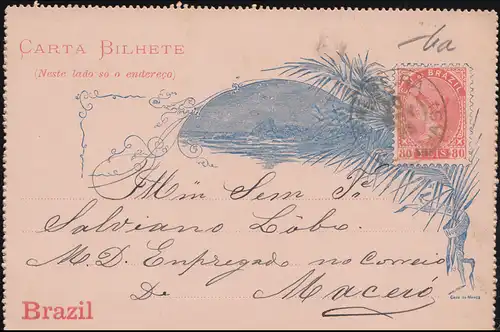 CARTA BILHETE
(Neste lado só o endereço)
BRAZIL
80 REIS 80
De
Illm Sem Sr
Salviano Lôbo
M. D. Empregado no Correio
De Maceió
Brazil
CASA DA MOEDA